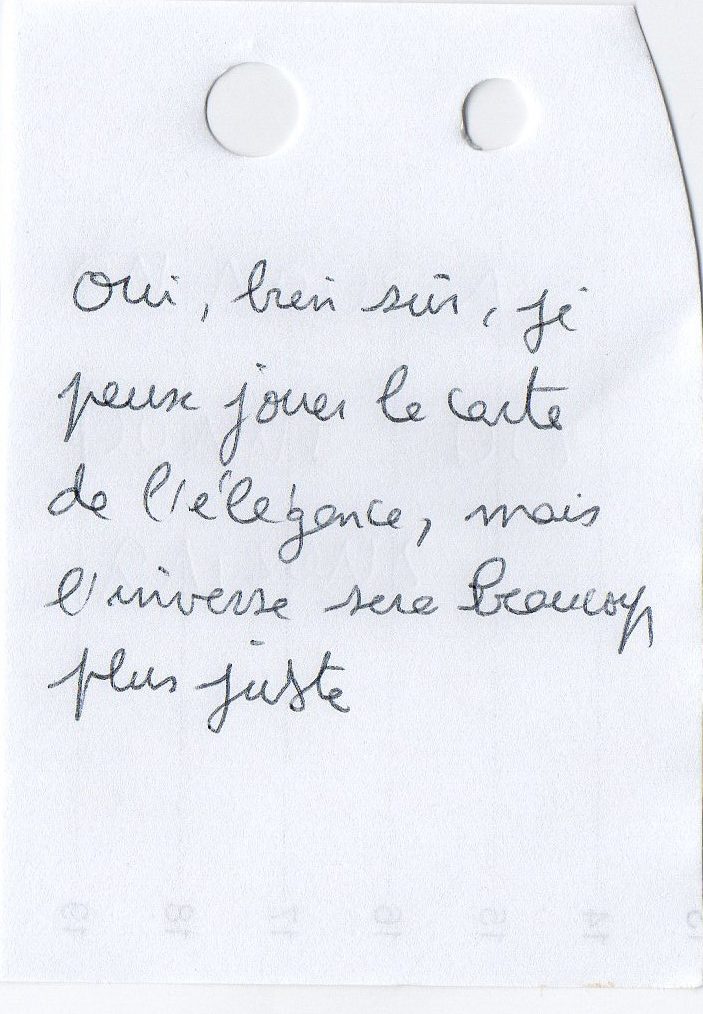 Oui, bien sûr, je
peux jouer la carte
de l'élégance, mais
l'inverse sera beaucoup
plus juste
19 18 17 16 15 14